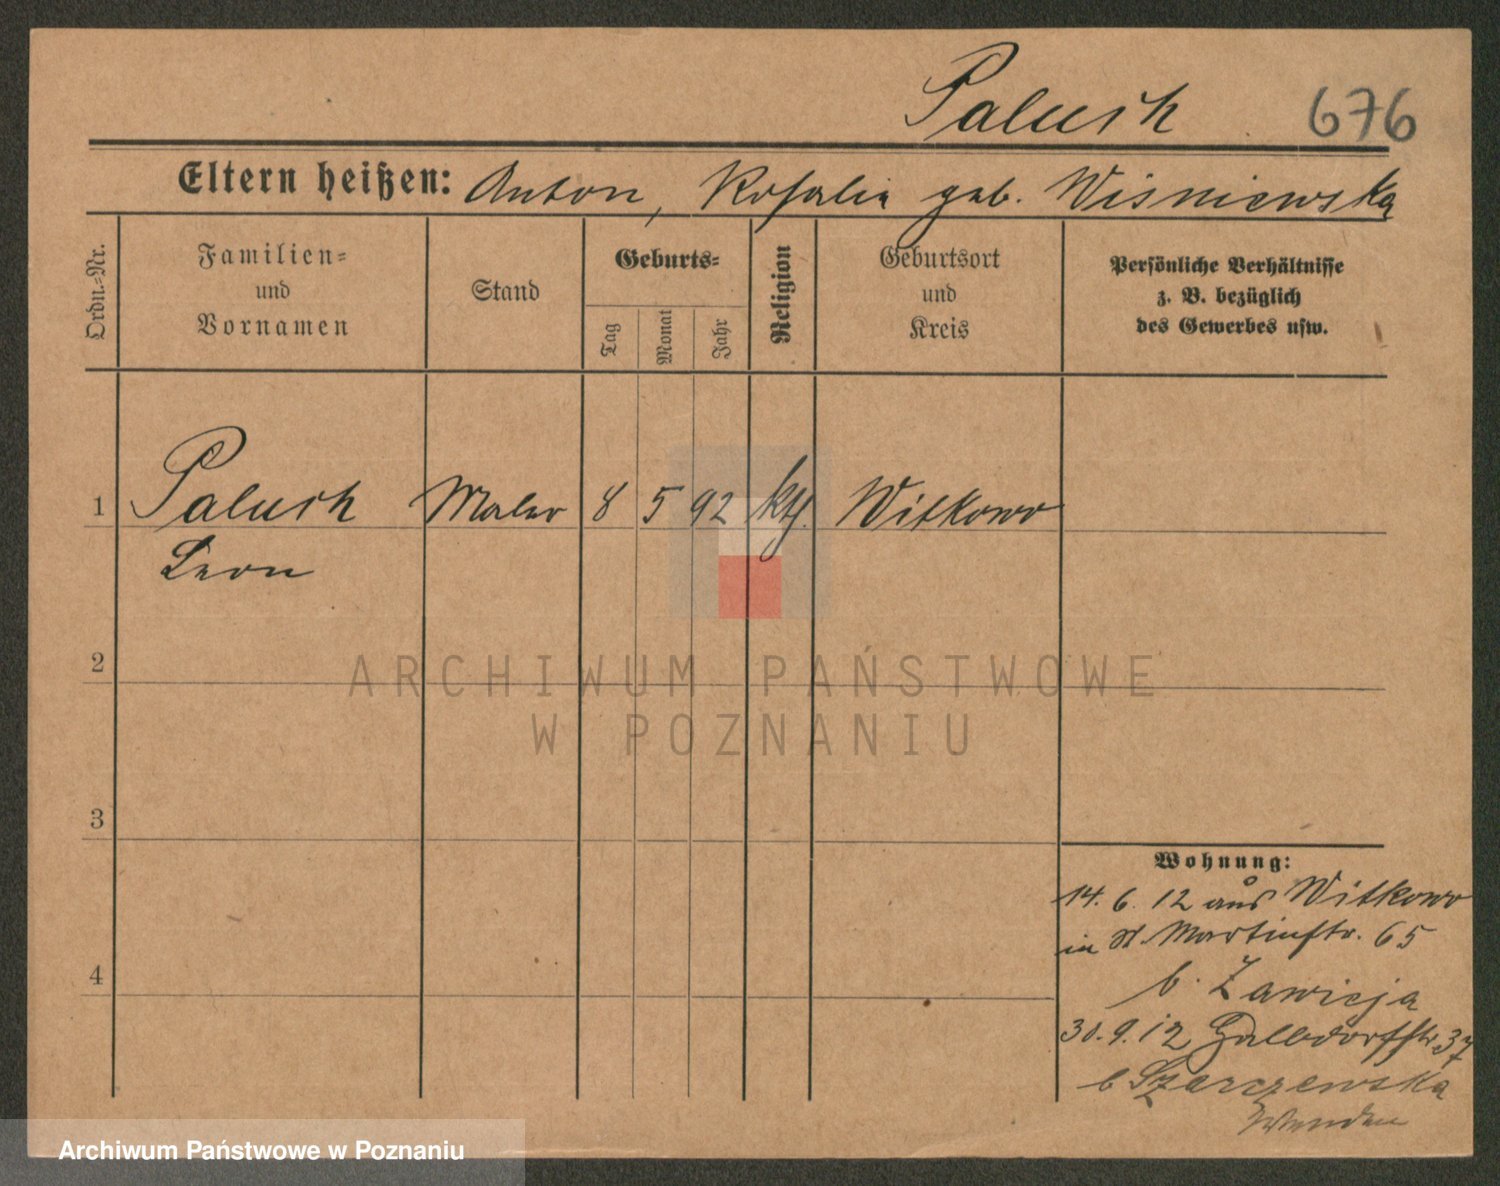 Paluch 676
Eltern heißen: Anton, Rosalie geb. Wisniewska
Ordn.-Nr.
Familien-
und
Vornamen
Stand
Geburts-
Tag
Monat
Jahr
Religion
Geburtsort
und
Kreis
Persönliche Verhältnisse
z. B. bezüglich
des Gewerbes usw.
1 Paluch Maler 8 5 92 kth. Witkowo
Leon
2
3
4
Wohnung:
14. 6. 12 aus Witkowo
in St. Martinstr. 65
b. Zawieja
30. 9. 12 Halbdorfstr. 37
b
ARCHIWUM PAŃSTWOWE
W POZNANIU
Archiwum Państwowe w Poznaniu